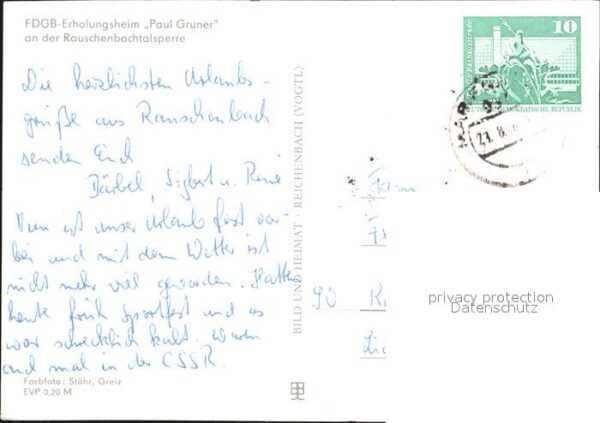 FDGB-Erholungsheim „Paul Gruner"
an der Rauschenbachtalsperre
Die herzlichsten Urlaubs-
grüße aus Rauschenbach
senden Euch
Bärbel, Sigbert u. René
Nun ist unser Urlaub fast vor-
bei und mit dem Wetter ist
nicht mehr viel geworden. Hatten
heute früh Sportfest und es
war schrecklich kalt. Waren
auch mal in der CSSR.
Farbfoto: Stöhr, Greiz
EVP 0,20 M
BILD UND HEIMAT · REICHENBACH (VOGTL)
10
DEUTSCHE DEMOKRATISCHE REPUBLIK
Fam
90
privacy protection
Datenschutz